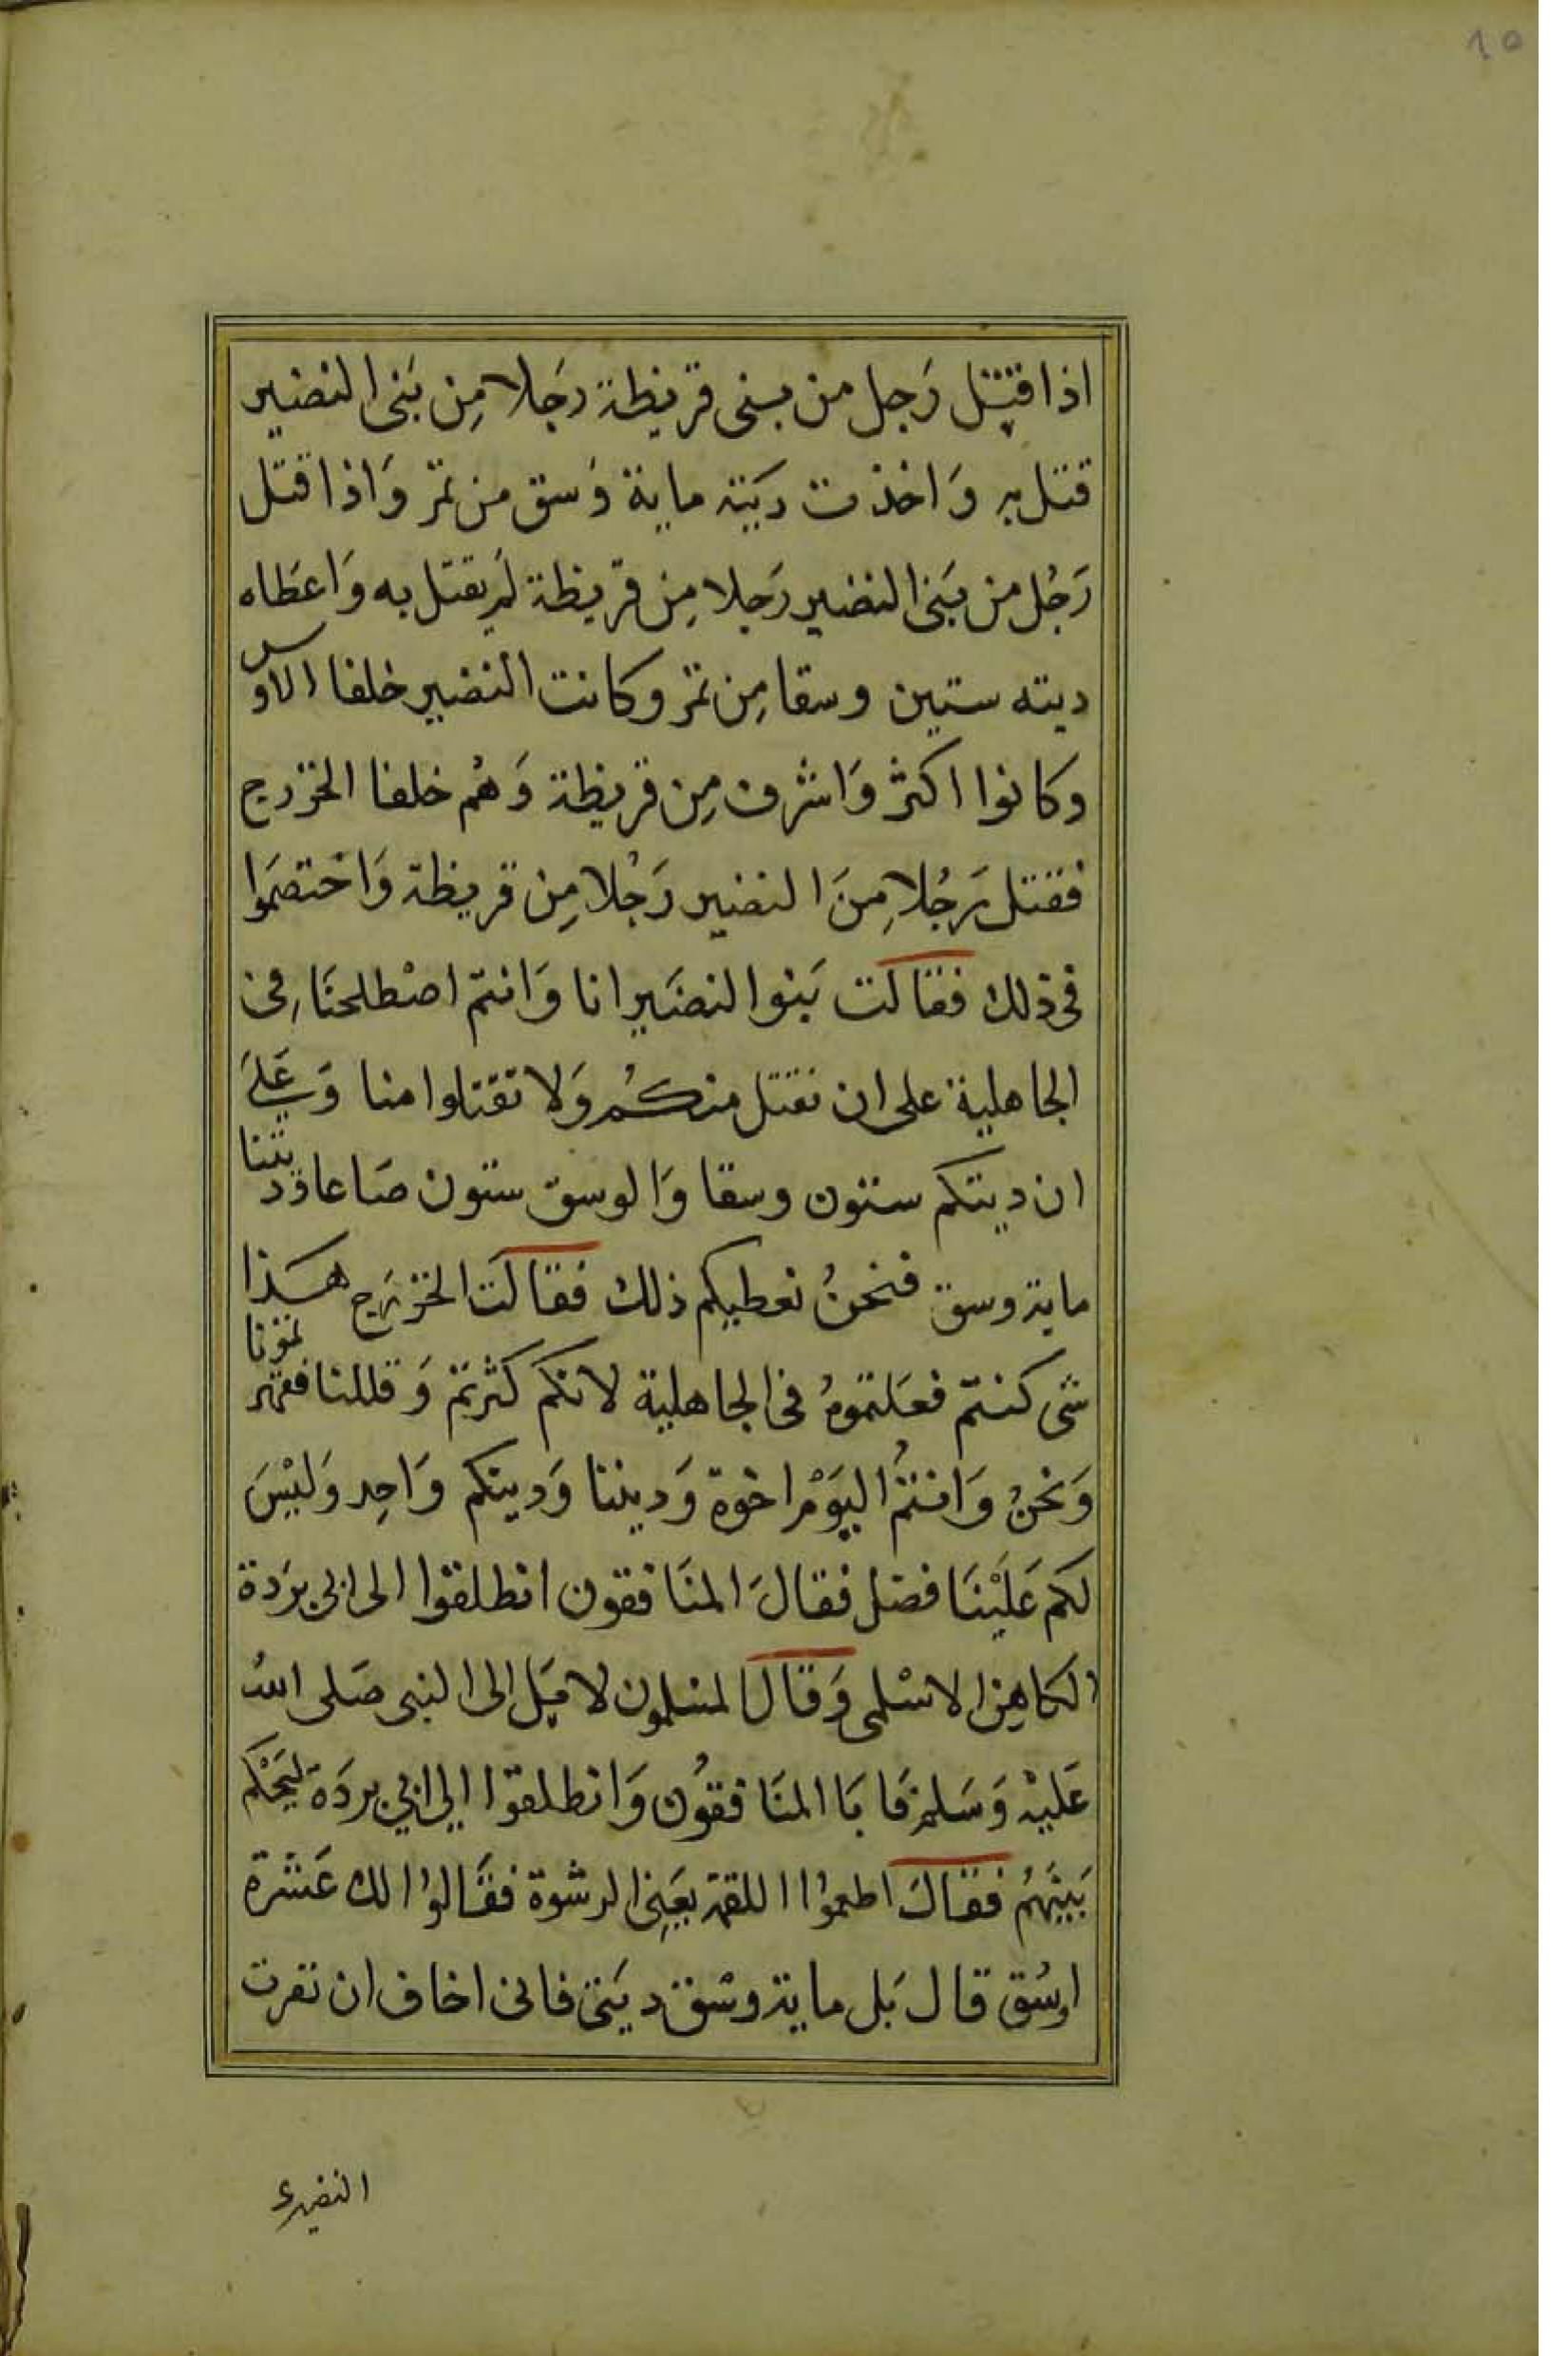 ١٥
اذا قتل رَجل من بنى قريظة رجَلا مِن بَنى النضير
قتل به وَاخذت ديَته ماية وَسق من تمر وَاذا قتل
رَجُل من بَنى النضير رَجلا مِن قريظة لم يقتل به وَاعطَاه
ديته ستين وسقا مِن تمر وكانت النضير خلفا الاوس
وكانوا اكثر وَاشرف مِن قريظة وَهُم خلفا الخزرج
فقتل رَجُلا مِنَ النضير رَجْلا مِن قريظة وَاختصَموا
فى ذلك فقالَت بَنوا النضَير انا وَانتم اصْطلحنَا فِى
الجاهلية على ان نقتل منكُم وَلا تقتلوا منا وَعَلى
ان ديتكم ستون وسقا وَالوسق ستون صَاعا وديتنا
ماية وسق فنحنُ نعطيكم ذلك فقالَت الخزرَج هذا
شى كنتم فعَلتموهُ فى الجاهلية لانكم كثرتم وَقللنا فقهرتمونا
وَنحنُ وَانتمُ اليَوْم اخوة وَديننا وَدينكم وَاحِد وَليْسَ
لكم عَليْنَا فضل فقالَ المنَافقون انطلقوا الى ابى برَدة
الكاهِن الاسْلمى وَقالَ المسلمون لا مِبَل الى النبى صَلى اللهُ
عَليْه وَسَلم فَابَا المنَافقوُن وَانطلقوا الي ابي بردَة ليَحْكم
بَينَهُم فقالَ اطعموُا اللقمة يعَنِى الرشوة فقَالوُا لك عَشرة
اوسُق قال بَل ماية وسْق ديَتى فانى اخاف ان نفرت
النضيرى